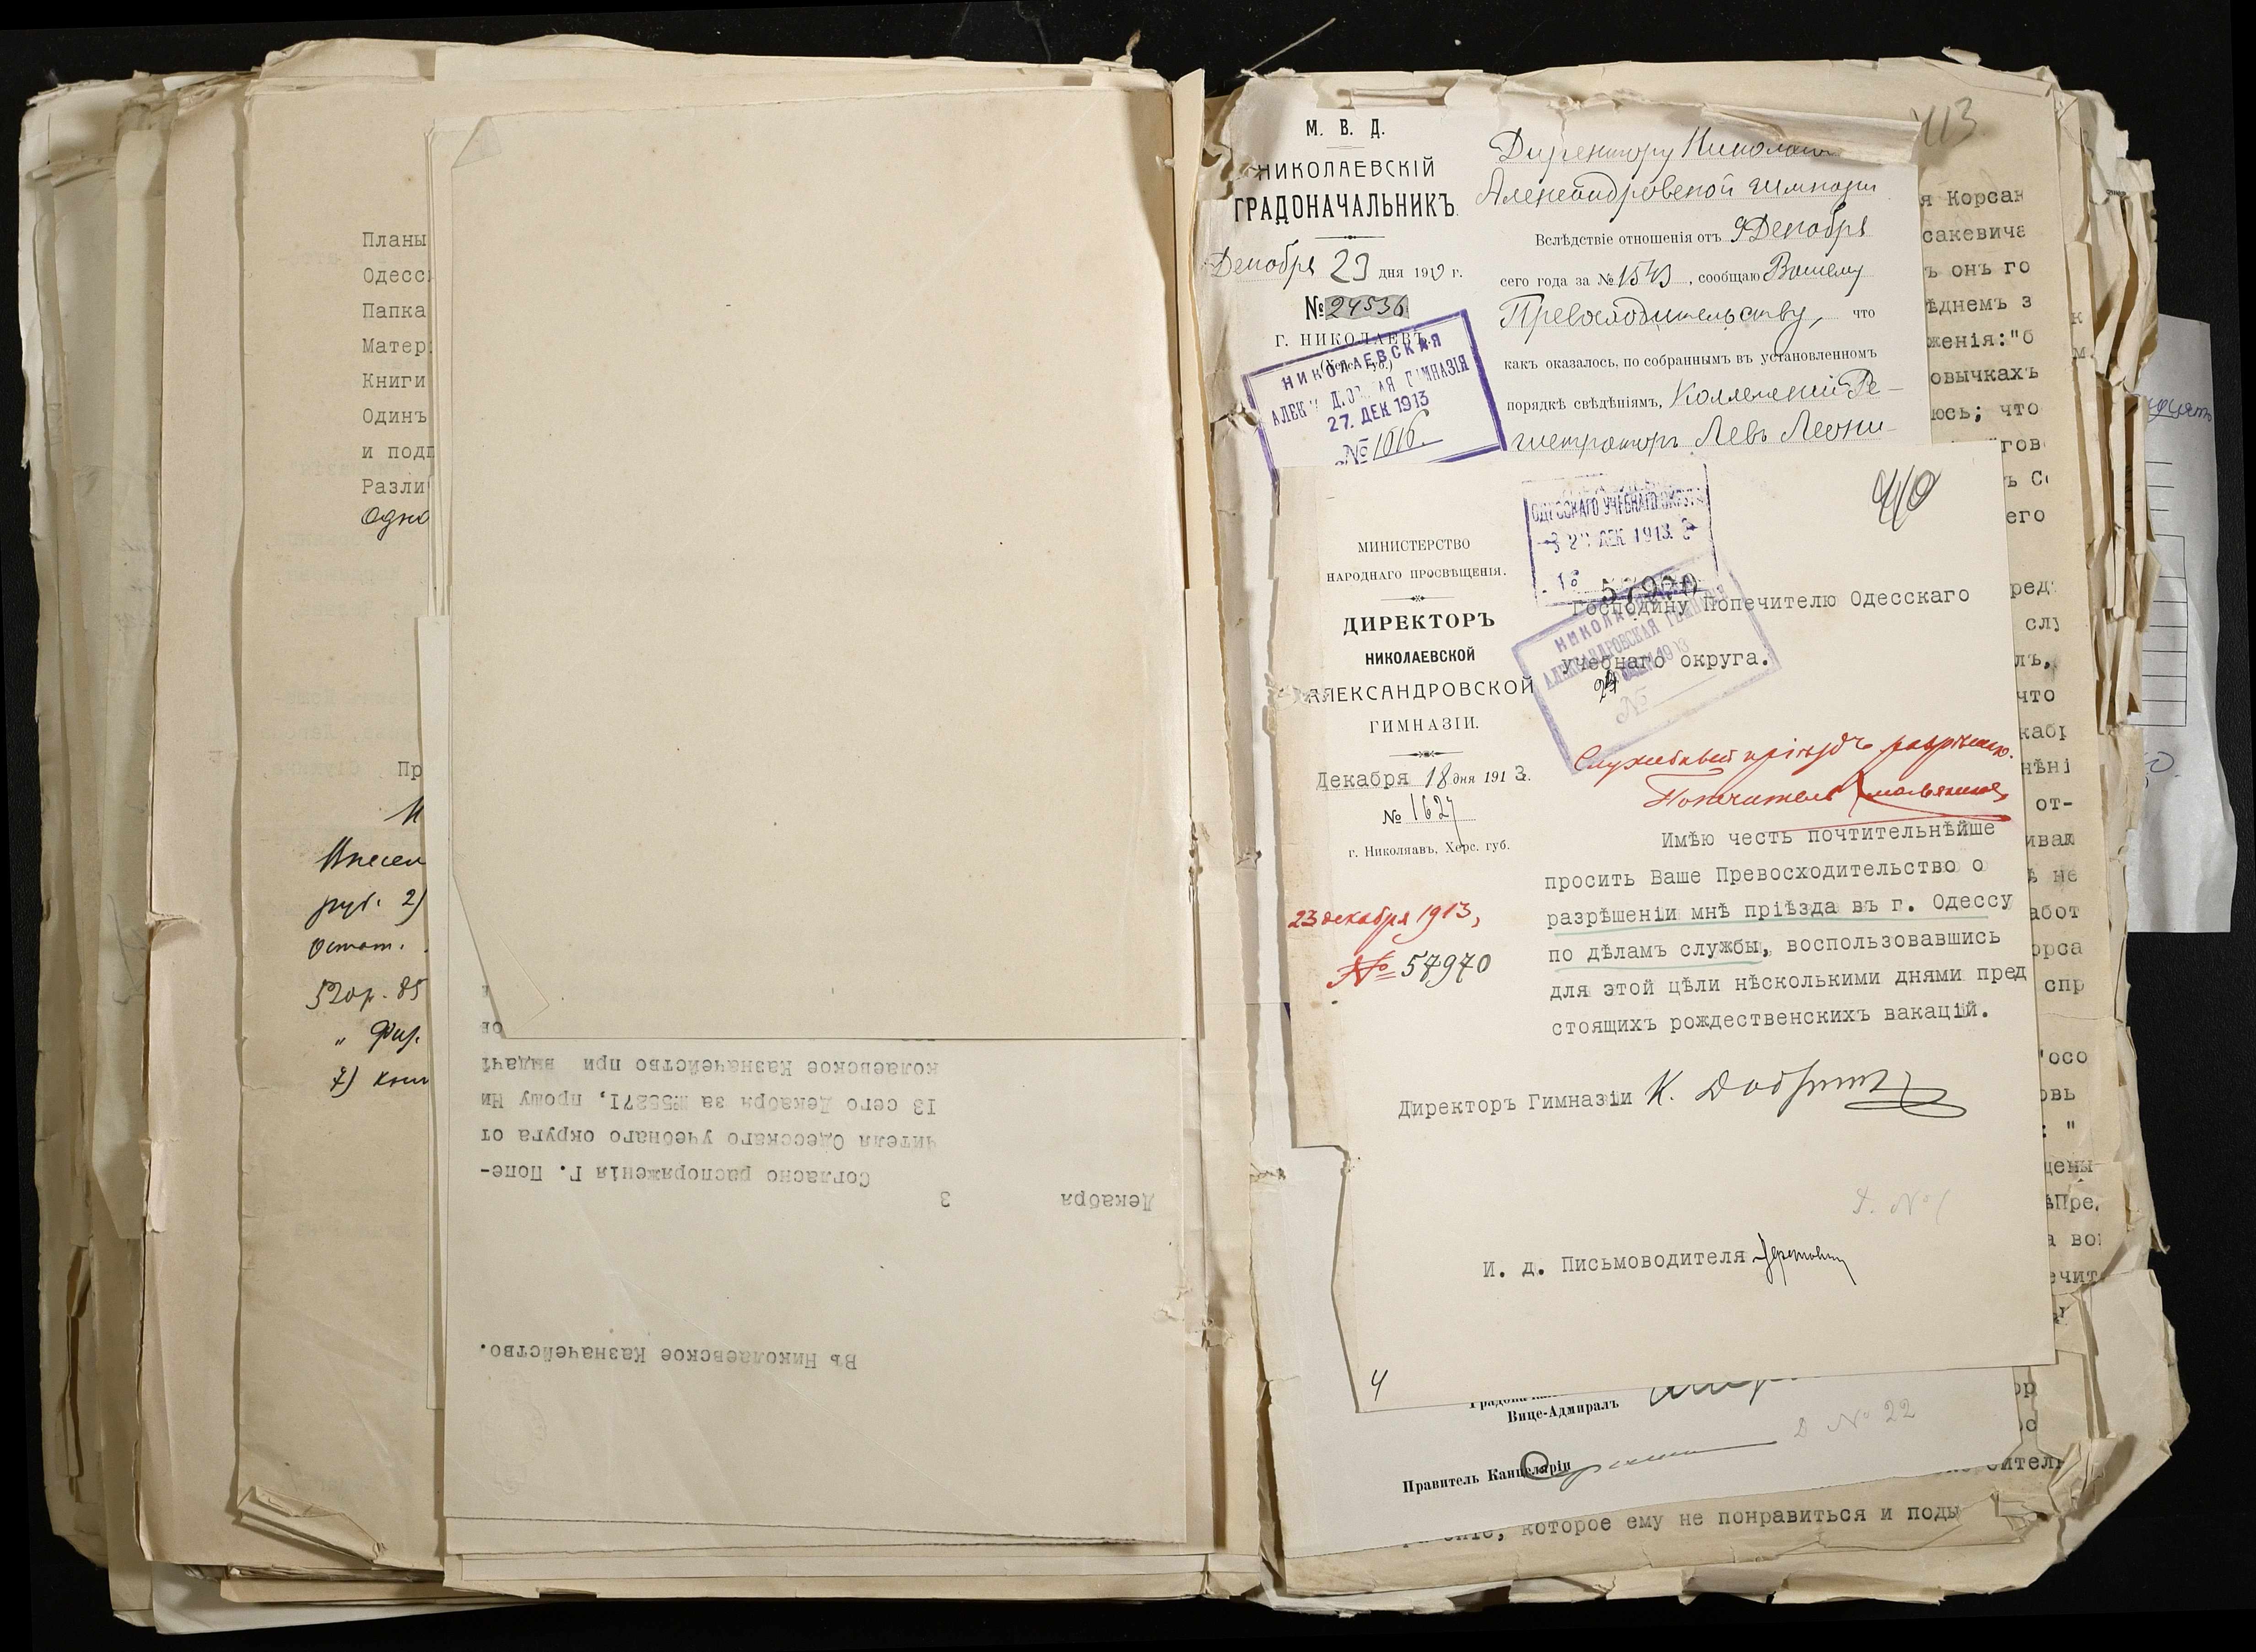 Планы
Одесс
Папка
Матер
Книги
Одинъ
и подп
Разли
Одно
Пр
руб. 2)
Остат.
520р. 85
7)
колаевское Казначейство при выдачѣ
13 сего Декабря за №55271, прошу Ни
чителя Одесскаго учебнаго округа от
Согласно распоряженія Г. Попе-
Декабря 3
Въ Николаевское Казначейство.
М. В. Д.
НИКОЛАЕВСКІЙ
ГРАДОНАЧАЛЬНИКЪ.
Декабря 23 дня 191 г.
№ 24536
Г. НИКОЛАЕВЪ.
(Херс. Губ.)
НИКОЛАЕВСКАЯ
АЛЕК ГИМНАЗІЯ
27. ДЕК 1913
№ 1616.
413
Директору Николаев
Александровской гимназіи
Вслѣдствіе отношенія отъ 9 Декабря
сего года за № 1543, сообщаю Вашему
Превосходительству, что
какъ оказалось, по собраннымъ въ установленномъ
порядкѣ свѣдѣніямъ, Коллежскій Ре-
гистраторъ Левъ Леони-
440
ОДЕССКАГО УЧЕБНАГО ОКРУГА
ДЕК 1913
57970
МИНИСТЕРСТВО
НАРОДНАГО ПРОСВѢЩЕНІЯ.
ДИРЕКТОРЪ
НИКОЛАЕВСКОЙ
АЛЕКСАНДРОВСКОЙ
ГИМНАЗІИ.
Декабря 18 дня 1913 г.
№ 1627
г. Николяавъ, Херс. губ.
23 декабря 1913,
№ 57970
Господину Попечителю Одесскаго
учебнаго округа.
НИКОЛАЕВСКАЯ
АЛЕКСАНДРОВСКАЯ ГИМНАЗІЯ
№
Служебный пріѣздъ разрѣшаю.
Попечитель Смольяниновъ
Имѣю честь почтительнѣйше
просить Ваше Превосходительство о
разрѣшеніи мнѣ пріѣзда въ г. Одессу
по дѣламъ службы, воспользовавшись
для этой цѣли нѣсколькими днями пред
стоящихъ рождественскихъ вакацій.
Директоръ Гимназіи К.
И. д. Письмоводителя
4
Вице-Адмиралъ
Д № 22
Правитель Канцеляріи
я Корсак
сакевича
ъ онъ го
ѣднемъ з
женія:"б
овычкахъ
юсь; что
гов
его
ред
слу
лъ,
что
кабр
нѣні
от-
ивал
не
абот
орса
спр
"осо
овь
дены
ѣПре.
а во
ечит
ител
которое ему не понравиться и поды